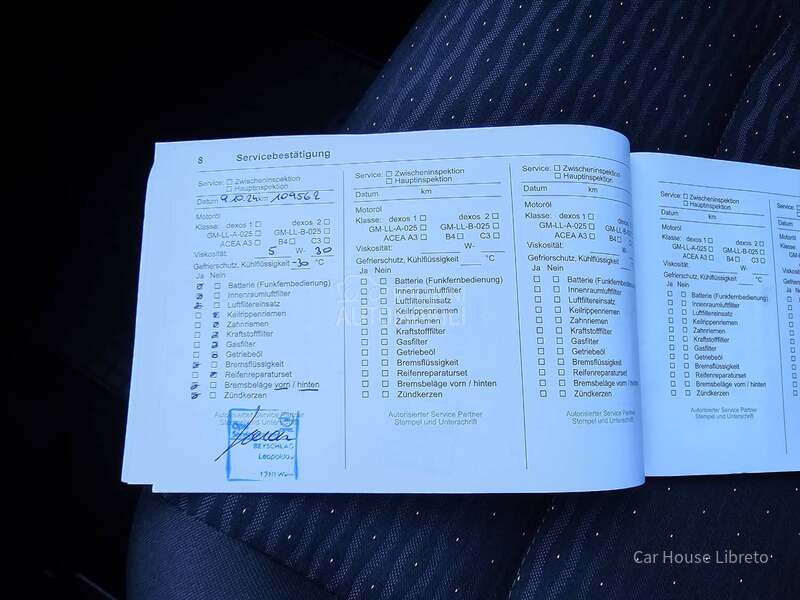 8 Servicebestätigung
Service: ☐ Zwischeninspektion
☐ Hauptinspektion
Datum 9.10.24 km 109562
Motoröl
Klasse: dexos 1 ☐ dexos 2 ☐
GM-LL-A-025 ☐ GM-LL-B-025 ☐
ACEA A3 ☐ B4 ☐ C3 ☐
Viskosität: 5 W- 30
Gefrierschutz, Kühlflüssigkeit -30 °C
Ja Nein
Batterie (Funkfernbedienung)
Innenraumluftfilter
Luftfiltereinsatz
Keilrippenriemen
Zahnriemen
Kraftstofffilter
Gasfilter
Getriebeöl
Bremsflüssigkeit
Reifenreparaturset
Bremsbeläge vorn / hinten
Zündkerzen
Autorisierter Service Partner
Stempel und Unterschrift
BEYSCHLAG
Service: ☐ Zwischeninspektion
☐ Hauptinspektion
Datum km
Motoröl
Klasse: dexos 1 ☐ dexos 2 ☐
GM-LL-A-025 ☐ GM-LL-B-025 ☐
ACEA A3 ☐ B4 ☐ C3 ☐
Viskosität: W-
Gefrierschutz, Kühlflüssigkeit °C
Ja Nein
☐ ☐ Batterie (Funkfernbedienung)
☐ ☐ Innenraumluftfilter
☐ ☐ Luftfiltereinsatz
☐ ☐ Keilrippenriemen
☐ ☐ Zahnriemen
☐ ☐ Kraftstofffilter
☐ ☐ Gasfilter
☐ ☐ Getriebeöl
☐ ☐ Bremsflüssigkeit
☐ ☐ Reifenreparaturset
☐ ☐ Bremsbeläge vorn / hinten
☐ ☐ Zündkerzen
Autorisierter Service Partner
Stempel und Unterschrift
Service: ☐ Zwischeninspektion
☐ Hauptinspektion
Datum km
Motoröl
Klasse: dexos 1 ☐ dexos 2 ☐
GM-LL-A-025 ☐ GM-LL-B-025 ☐
ACEA A3 ☐ B4 ☐ C3 ☐
Viskosität: W-
Gefrierschutz, Kühlflüssigkeit
Ja Nein
☐ ☐ Batterie (Funkfernbedienung)
☐ ☐ Innenraumluftfilter
☐ ☐ Luftfiltereinsatz
☐ ☐ Keilrippenriemen
☐ ☐ Zahnriemen
☐ ☐ Kraftstofffilter
☐ ☐ Gasfilter
☐ ☐ Getriebeöl
☐ ☐ Bremsflüssigkeit
☐ ☐ Reifenreparaturset
☐ ☐ Bremsbeläge vorn / hinten
☐ ☐ Zündkerzen
Autorisierter Service Partner
Stempel und Unterschrift
Service: ☐ Zwischeninspektion
☐ Hauptinspektion
Datum km
Motoröl
Klasse: dexos 1 ☐ dexos 2 ☐
GM-LL-A-025 ☐ GM-LL-B-025 ☐
ACEA A3 ☐ B4 ☐ C3 ☐
Viskosität: W-
Gefrierschutz, Kühlflüssigkeit °C
Ja Nein
☐ ☐ Batterie (Funkfernbedienung)
☐ ☐ Innenraumluftfilter
☐ ☐ Luftfiltereinsatz
☐ ☐ Keilrippenriemen
☐ ☐ Zahnriemen
☐ ☐ Kraftstofffilter
☐ ☐ Gasfilter
☐ ☐ Getriebeöl
☐ ☐ Bremsflüssigkeit
☐ ☐ Reifenreparaturset
☐ ☐ Bremsbeläge vorn / hinten
☐ ☐ Zündkerzen
Autorisierter Service Partner
Stempel und Unterschrift
Car House Libreto